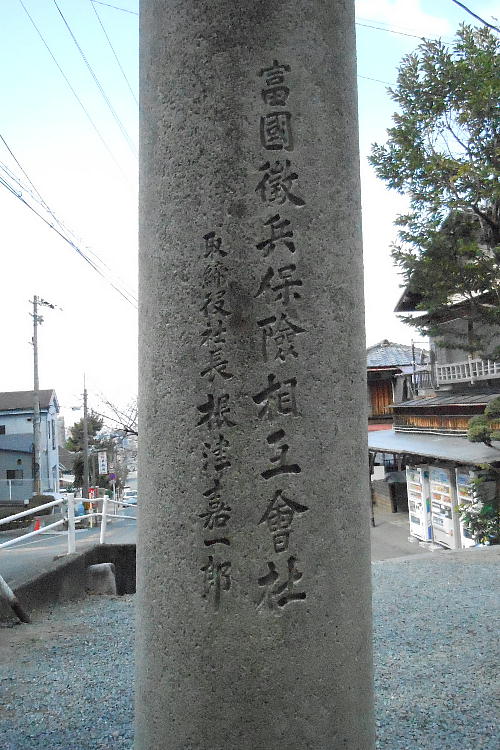 富國徴兵保險相互會社
取締役社長根津嘉一郎